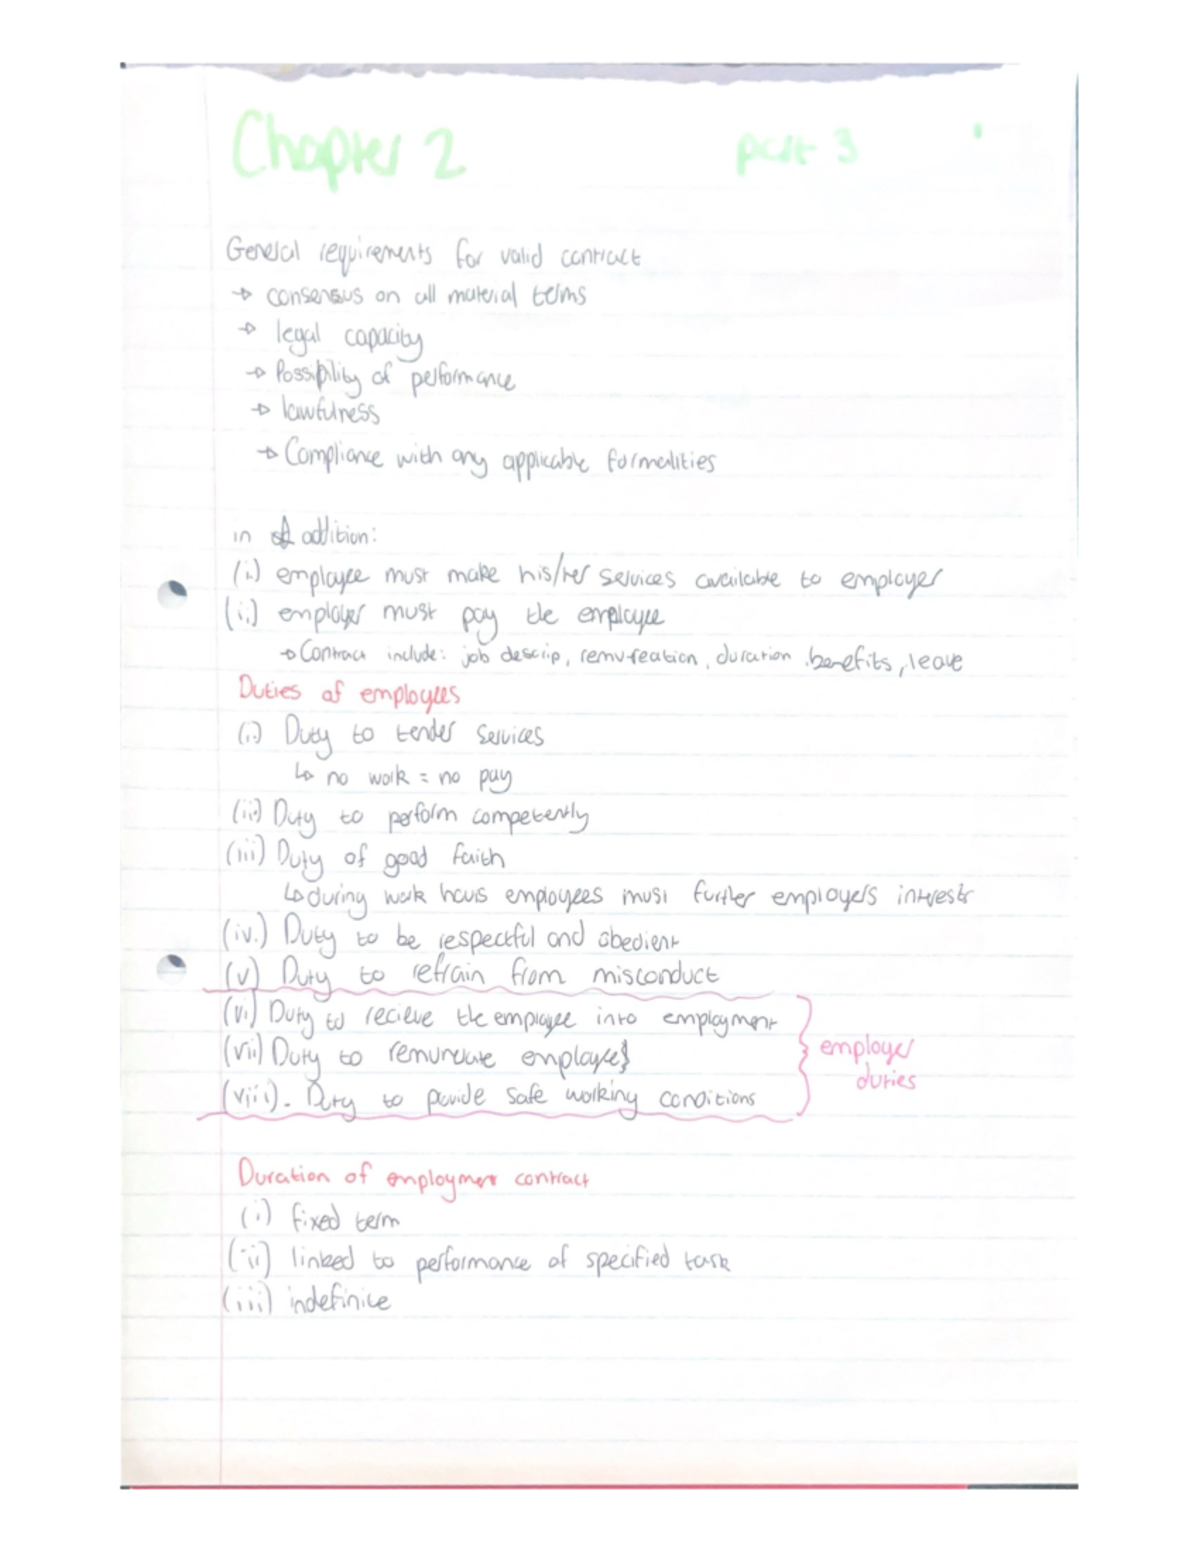 Chapter 2 part 3
General requirements for valid contract
→ consensus on all material terms
→ legal capacity
→ Possibility of performance
→ lawfulness
→ Compliance with any applicable formalities
in addition:
(i.) employee must make his/her services available to employer
(ii) employer must pay the employee
→ Contract include: job descrip, remureation, duration, benefits, leave
Duties of employees
(i.) Duty to tender services
↳ no work = no pay
(ii) Duty to perform competently
(iii) Duty of good faith
↳ during work hours employees must further employers interests
(iv.) Duty to be respectful and obedient
(v) Duty to refrain from misconduct
(vi) Duty to recieve the employee into employment
(vii) Duty to remunerate employees
(viii). Duty to provide safe working conditions
employer
duties
Duration of employment contract
(i) fixed term
(ii) linked to performance of specified task
(iii) indefinite